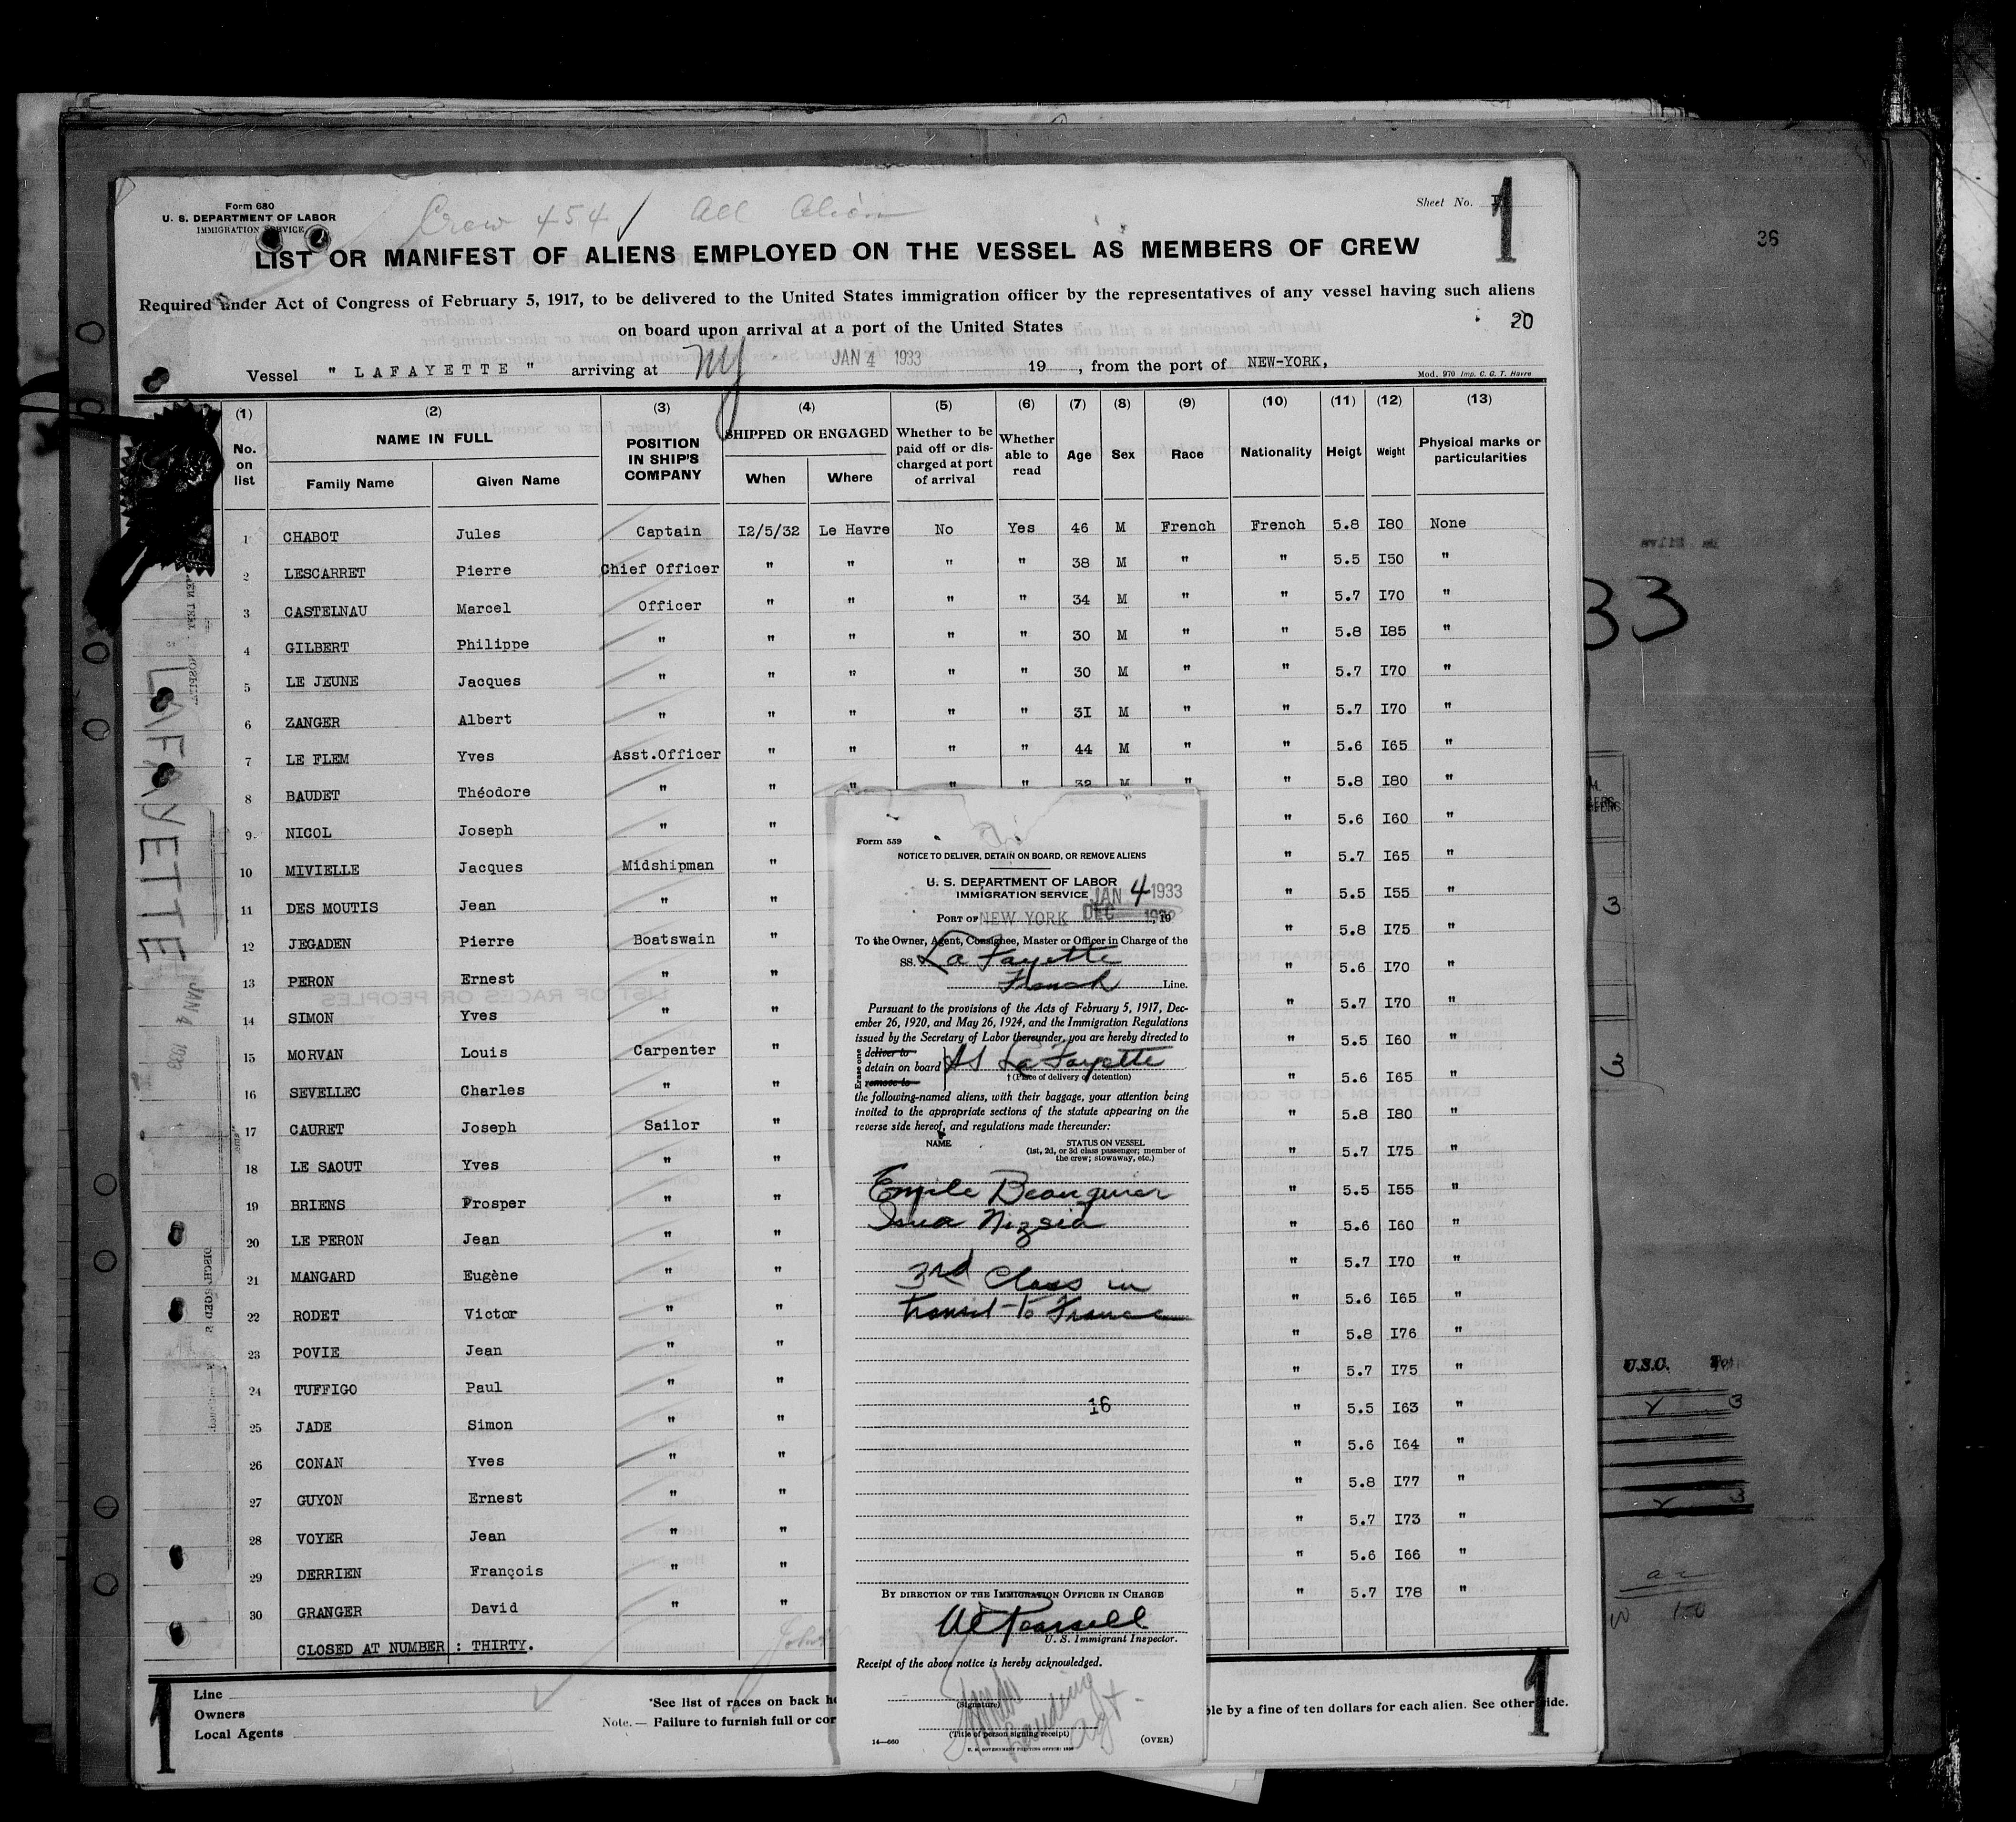 Form 680
U. S. DEPARTMENT OF LABOR
IMMIGRATION SERVICE
Crew 454 / All Alien
Sheet No. 1
LIST OR MANIFEST OF ALIENS EMPLOYED ON THE VESSEL AS MEMBERS OF CREW
Required under Act of Congress of February 5, 1917, to be delivered to the United States immigration officer by the representatives of any vessel having such aliens
on board upon arrival at a port of the United States
20
Vessel " LAFAYETTE " arriving at NY JAN 4 1933 19 , from the port of NEW-YORK,
Mod. 970 Imp. C. G. T. Havre
(1) (2) (3) (4) (5) (6) (7) (8) (9) (10) (11) (12) (13)
No. on list NAME IN FULL POSITION IN SHIP'S COMPANY SHIPPED OR ENGAGED Whether to be paid off or discharged at port of arrival Whether able to read Age Sex Race Nationality Heigt Weight Physical marks or particularities
Family Name Given Name When Where
1 CHABOT Jules Captain I2/5/32 Le Havre No Yes 46 M French French 5.8 I80 None
2 LESCARRET Pierre Chief Officer " " " " 38 M " " 5.5 I50 "
3 CASTELNAU Marcel Officer " " " " 34 M " " 5.7 I70 "
4 GILBERT Philippe " " " " " 30 M " " 5.8 I85 "
5 LE JEUNE Jacques " " " " " 30 M " " 5.7 I70 "
6 ZANGER Albert " " " " " 3I M " " 5.7 I70 "
7 LE FLEM Yves Asst.Officer " " " " 44 M " " 5.6 I65 "
8 BAUDET Théodore " " " " " 32 M " " 5.8 I80 "
9. NICOL Joseph " " " 5.6 I60 "
10 MIVIELLE Jacques Midshipman " " 5.7 I65 "
11 DES MOUTIS Jean " " " 5.5 I55 "
12 JEGADEN Pierre Boatswain " " 5.8 I75 "
13 PERON Ernest " " " 5.6 I70 "
14 SIMON Yves " " " 5.7 I70 "
15 MORVAN Louis Carpenter " " 5.5 I60 "
16 SEVELLEC Charles " " " 5.6 I65 "
17 CAURET Joseph Sailor " " 5.8 I80 "
18 LE SAOUT Yves " " " 5.7 I75 "
19 BRIENS Prosper " " " 5.5 I55 "
20 LE PERON Jean " " " 5.6 I60 "
21 MANGARD Eugène " " " 5.7 I70 "
22 RODET Victor " " " 5.6 I65 "
23 POVIE Jean " " " 5.8 I76 "
24 TUFFIGO Paul " " " 5.7 I75 "
25 JADE Simon " " " 5.5 I63 "
26 CONAN Yves " " " 5.6 I64 "
27 GUYON Ernest " " " 5.8 I77 "
28 VOYER Jean " " " 5.7 I73 "
29 DERRIEN François " " " 5.6 I66 "
30 GRANGER David " " " 5.7 I78 "
CLOSED AT NUMBER : THIRTY.
Line
Owners
Local Agents
*See list of races on back
Note.— Failure to furnish full or
by a fine of ten dollars for each alien. See other side.
1
1
1
Form 559
NOTICE TO DELIVER, DETAIN ON BOARD, OR REMOVE ALIENS
U. S. DEPARTMENT OF LABOR
IMMIGRATION SERVICE
JAN 4 1933
PORT OF NEW YORK DEC , 19
To the Owner, Agent, Consignee, Master or Officer in Charge of the
SS. La Fayette
French Line.
Pursuant to the provisions of the Acts of February 5, 1917, Dec-
ember 26, 1920, and May 26, 1924, and the Immigration Regulations
issued by the Secretary of Labor thereunder, you are hereby directed to
Erase one
deliver to
detain on board SS La Fayette
remove to
† (Place of delivery or detention)
the following-named aliens, with their baggage, your attention being
invited to the appropriate sections of the statute appearing on the
reverse side hereof, and regulations made thereunder:
NAME STATUS ON VESSEL
(1st, 2d, or 3d class passenger; member of
the crew; stowaway, etc.)
Emile
3rd Class in
transit to France
16
BY DIRECTION OF THE IMMIGRATION OFFICER IN CHARGE
U. S. Immigrant Inspector.
Receipt of the above notice is hereby acknowledged.
(Signature)
(Title of person signing receipt)
14—660
(OVER)
U. S. GOVERNMENT PRINTING OFFICE
LAFAYETTE
JAN 4 1933
36
33
3
3
U.S.C.
3
3